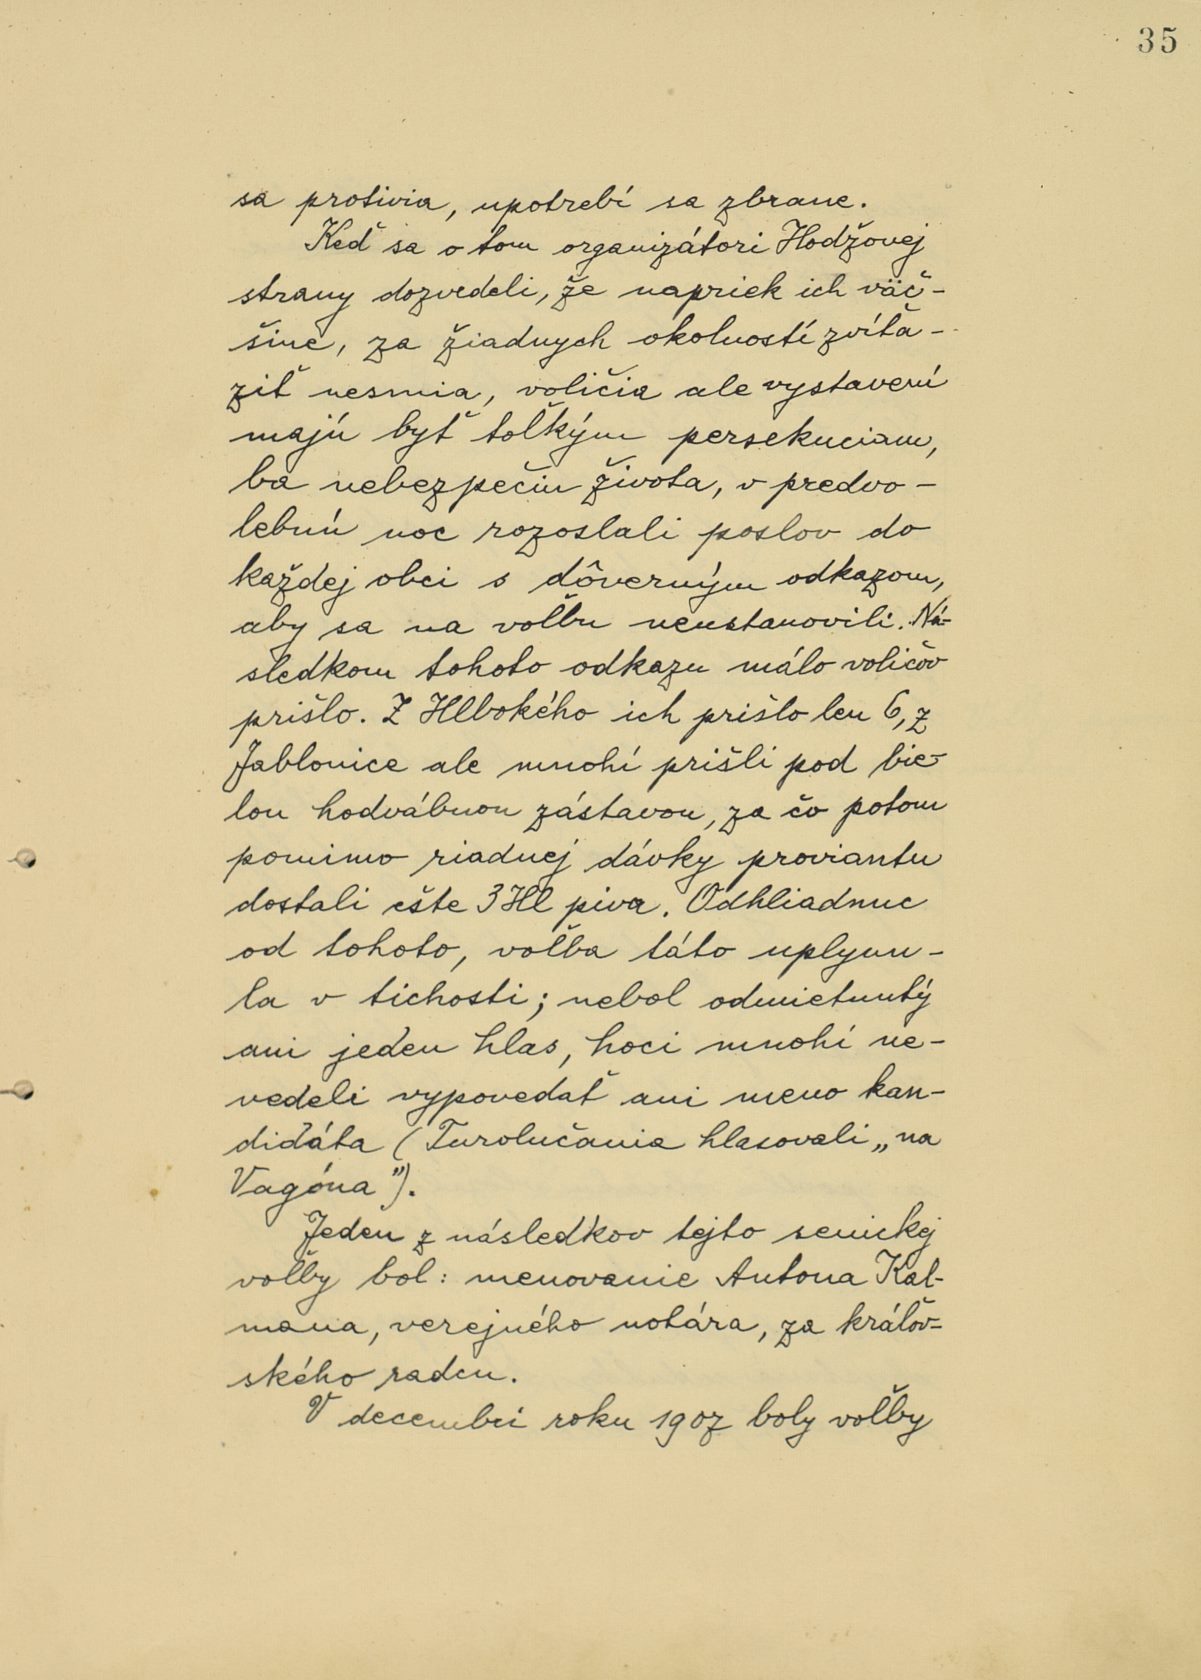 35
sa protivia, upotrebí sa zbrane.
Keď sa o tom organizátori Hodžovej
strany dozvedeli, že napriek ich väč-
šine, za žiadnych okolností zvíťa-
ziť nesmia, voličia ale vystavení
majú byť toľkým persekuciam,
ba nebezpečiu života, v predvo-
lebnú noc rozoslali poslov do
každej obci s dôverným odkazom,
aby sa na voľbu neustanovili. Ná-
sledkom tohoto odkazu málo voličov
prišlo. Z Hlbokého ich prišlo len 6, z
Jablonice ale mnohí prišli pod bie-
lou hodvábnou zástavou, za čo potom
pomimo riadnej dávky proviantu
dostali ešte 3 Hl piva. Odhliadnuc
od tohoto, voľba táto uplynu-
la v tichosti; nebol odmietnutý
ani jeden hlas, hoci mnohí ne-
vedeli vypovedať ani meno kan-
didáta (Turolučania hlasovali „na
Vagóna").
Jeden z následkov tejto senickej
voľby bol: menovanie Antona Kal-
mana, verejného notára, za kráľov-
ského radcu.
V decembri roku 1907 boly voľby